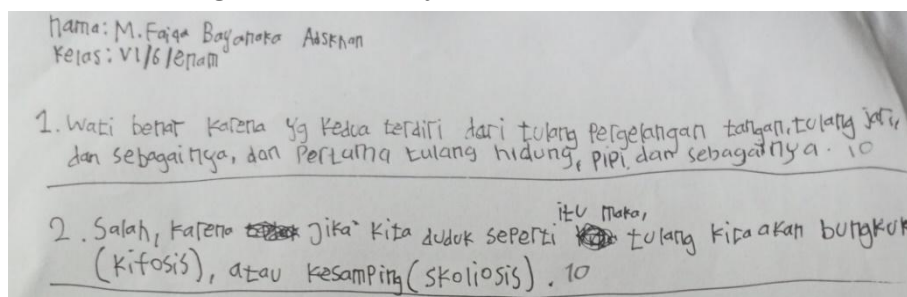 Nama: M. Faiqa Bayanaka Adskhan
Kelas: VI/6/enam
1. Wati benar karena yg kedua terdiri dari tulang pergelangan tangan, tulang jari,
dan sebagainya, dan Pertama tulang hidung, pipi, dan sebagainya. 10
itu maka,
2. Salah, karena jika kita duduk seperti tulang kita akan bungkuk
(kifosis), atau kesamping (skoliosis). 10